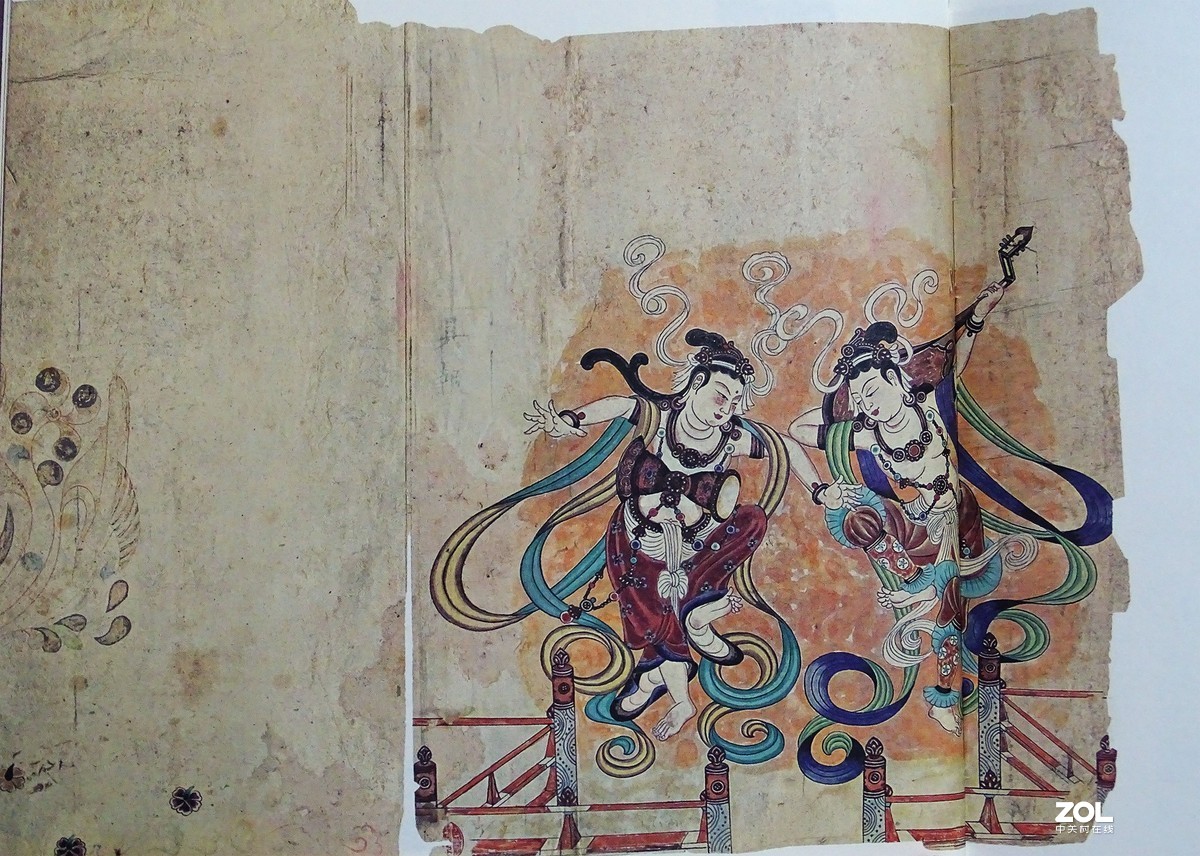 ZOL
中关村在线